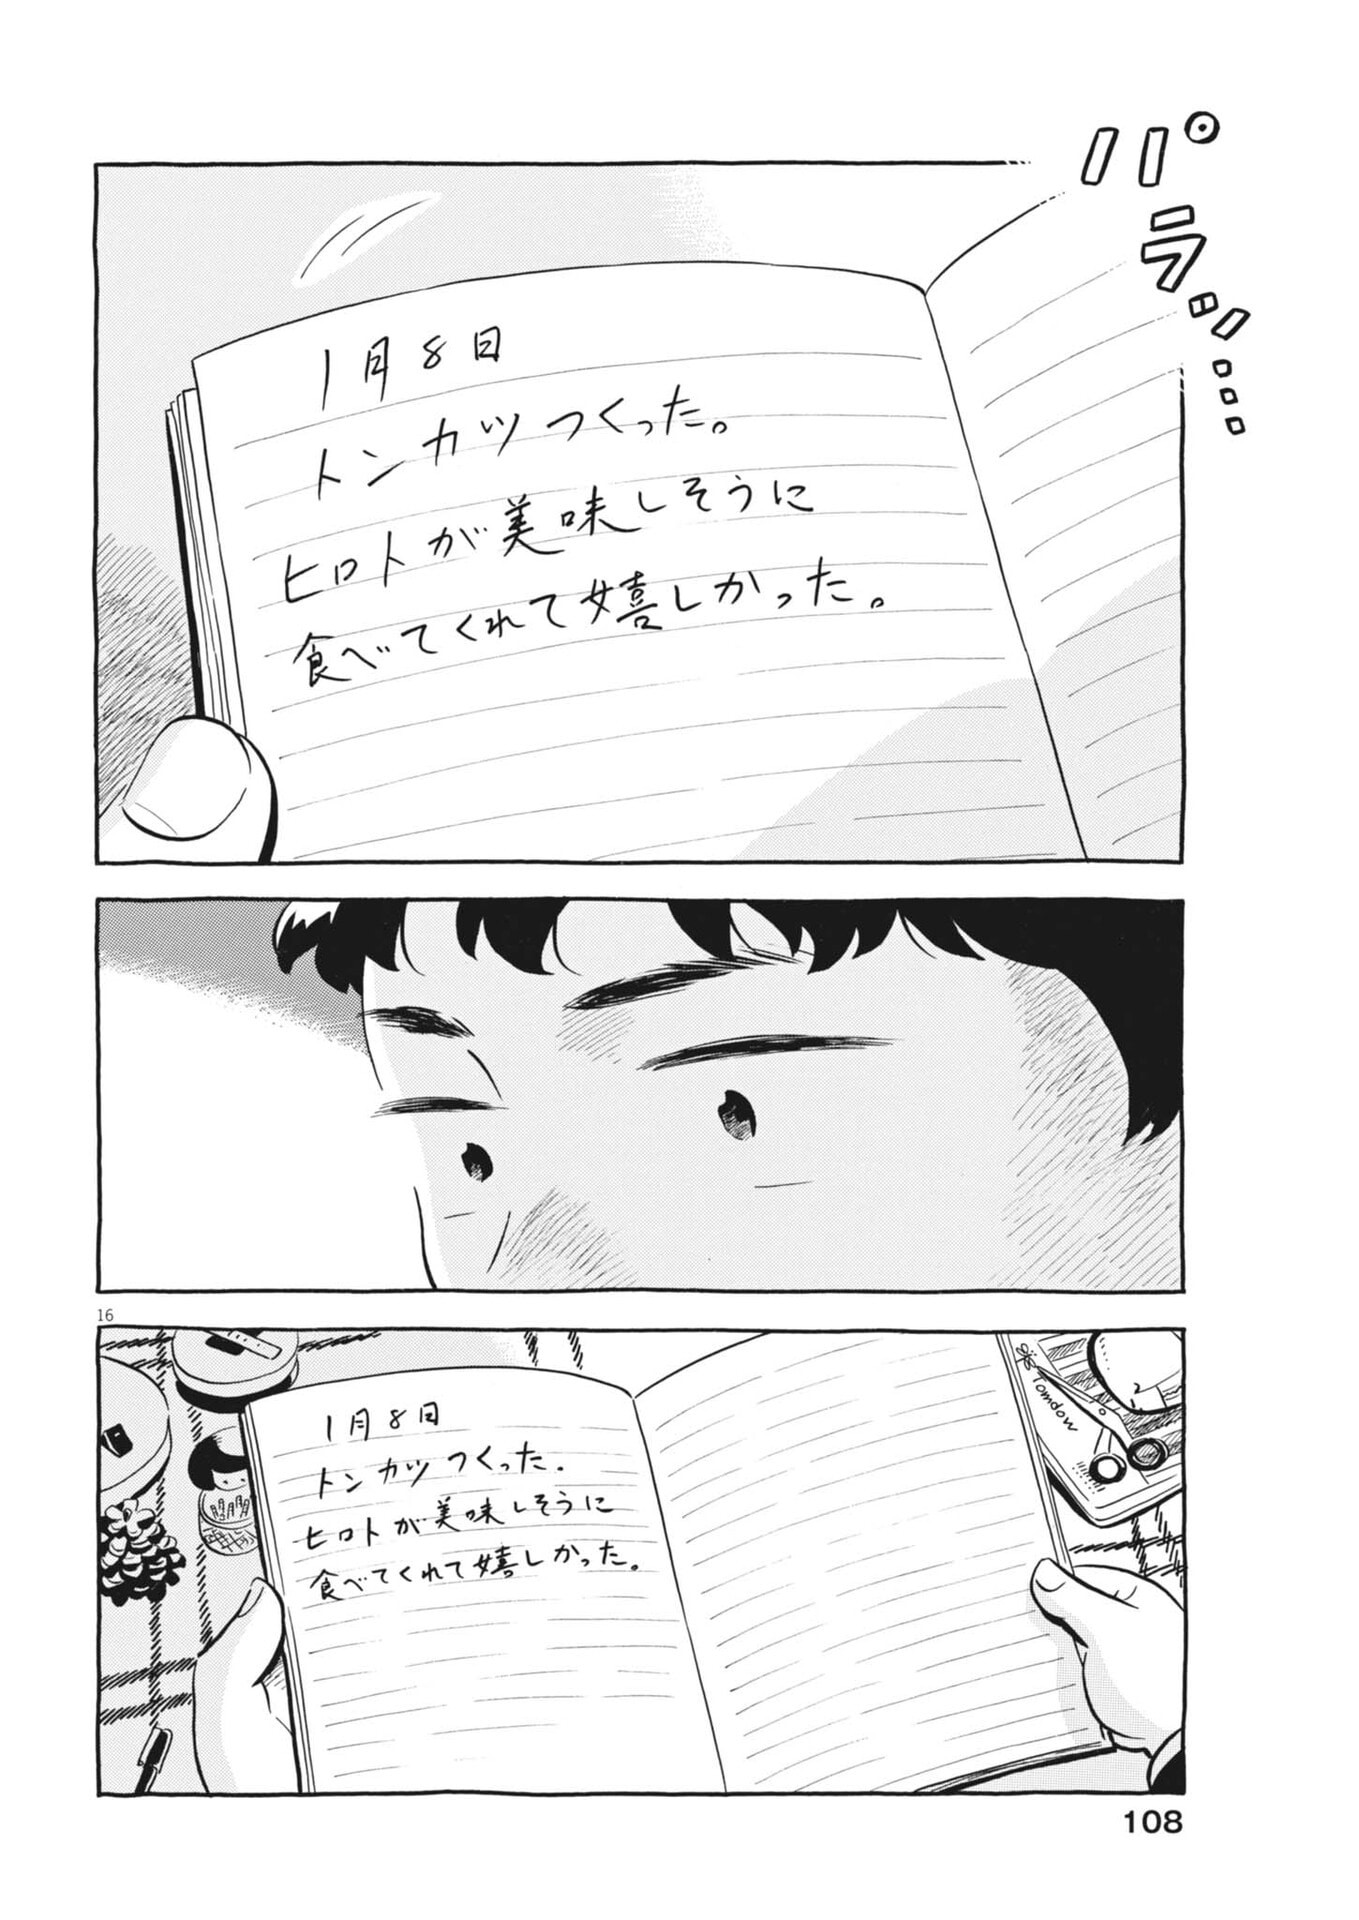 パラッ…
1月8日
トンカツつくった。
ヒロトが美味しそうに
食べてくれて嬉しかった。
16
1月8日
トンカツつくった.
ヒロトが美味しそうに
食べてくれて嬉しかった。
Tomdow
2
108